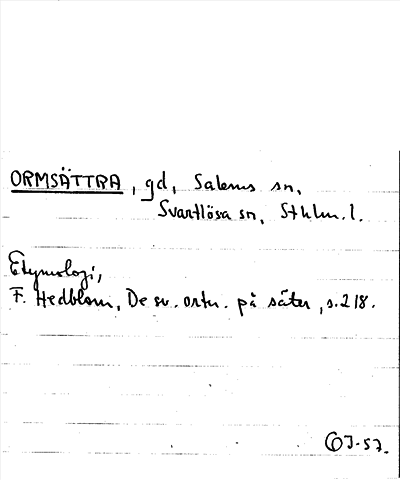 ORMSÄTTRA, gd, Salems sn,
Svartlösa sn, Sthlm. l.
Etymologi,
F. Hedblom, De sv. ortn. på säter, s. 218.
J-57.